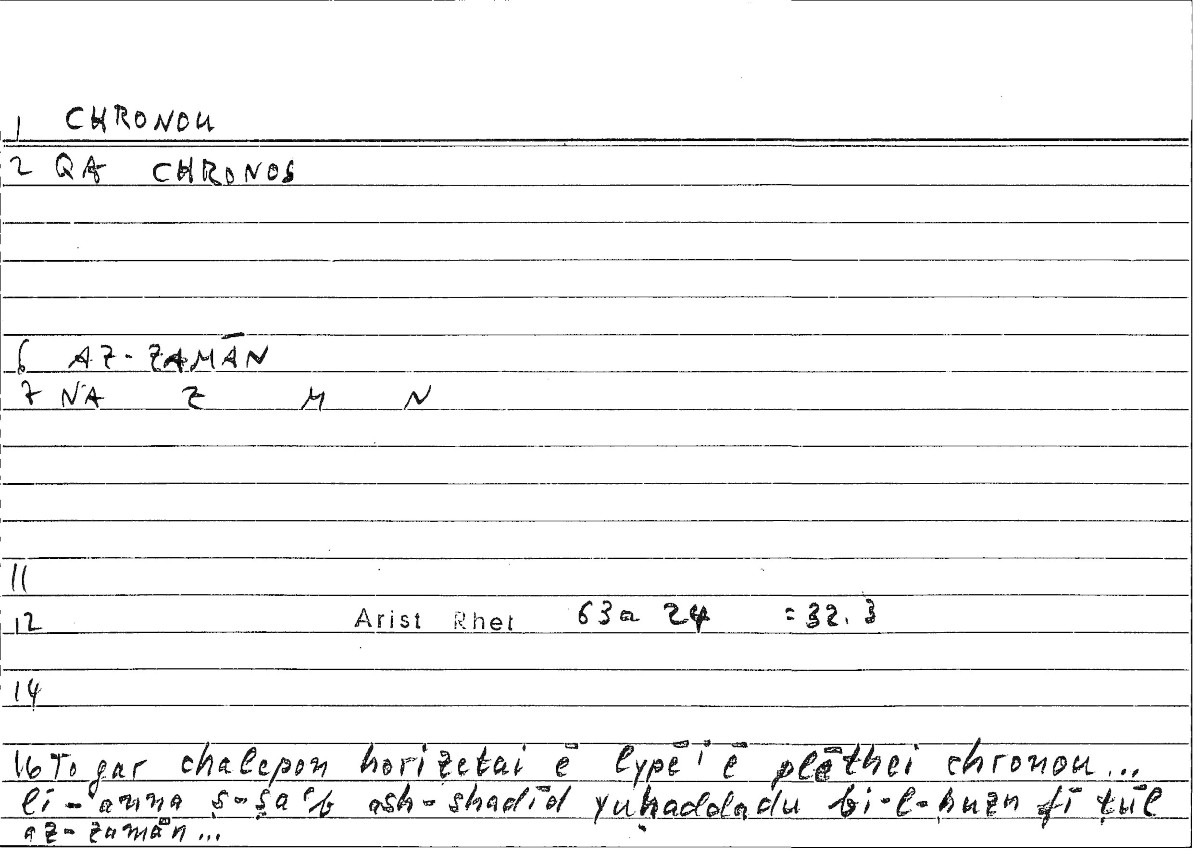 1 CHRONOU
2 QA CHRONOS
6 AZ-ZAMĀN
7 NA Z M N
11
12 Arist Rhet 63a 24 = 32.3
14
16 To gar chalepon horizetai ē lypēi ē plēthei chronou...
li-anna ṣ-ṣaʿb ash-shadīd yuḥaddadu bi-l-ḥuzn fī ṭūl
az-zamān...